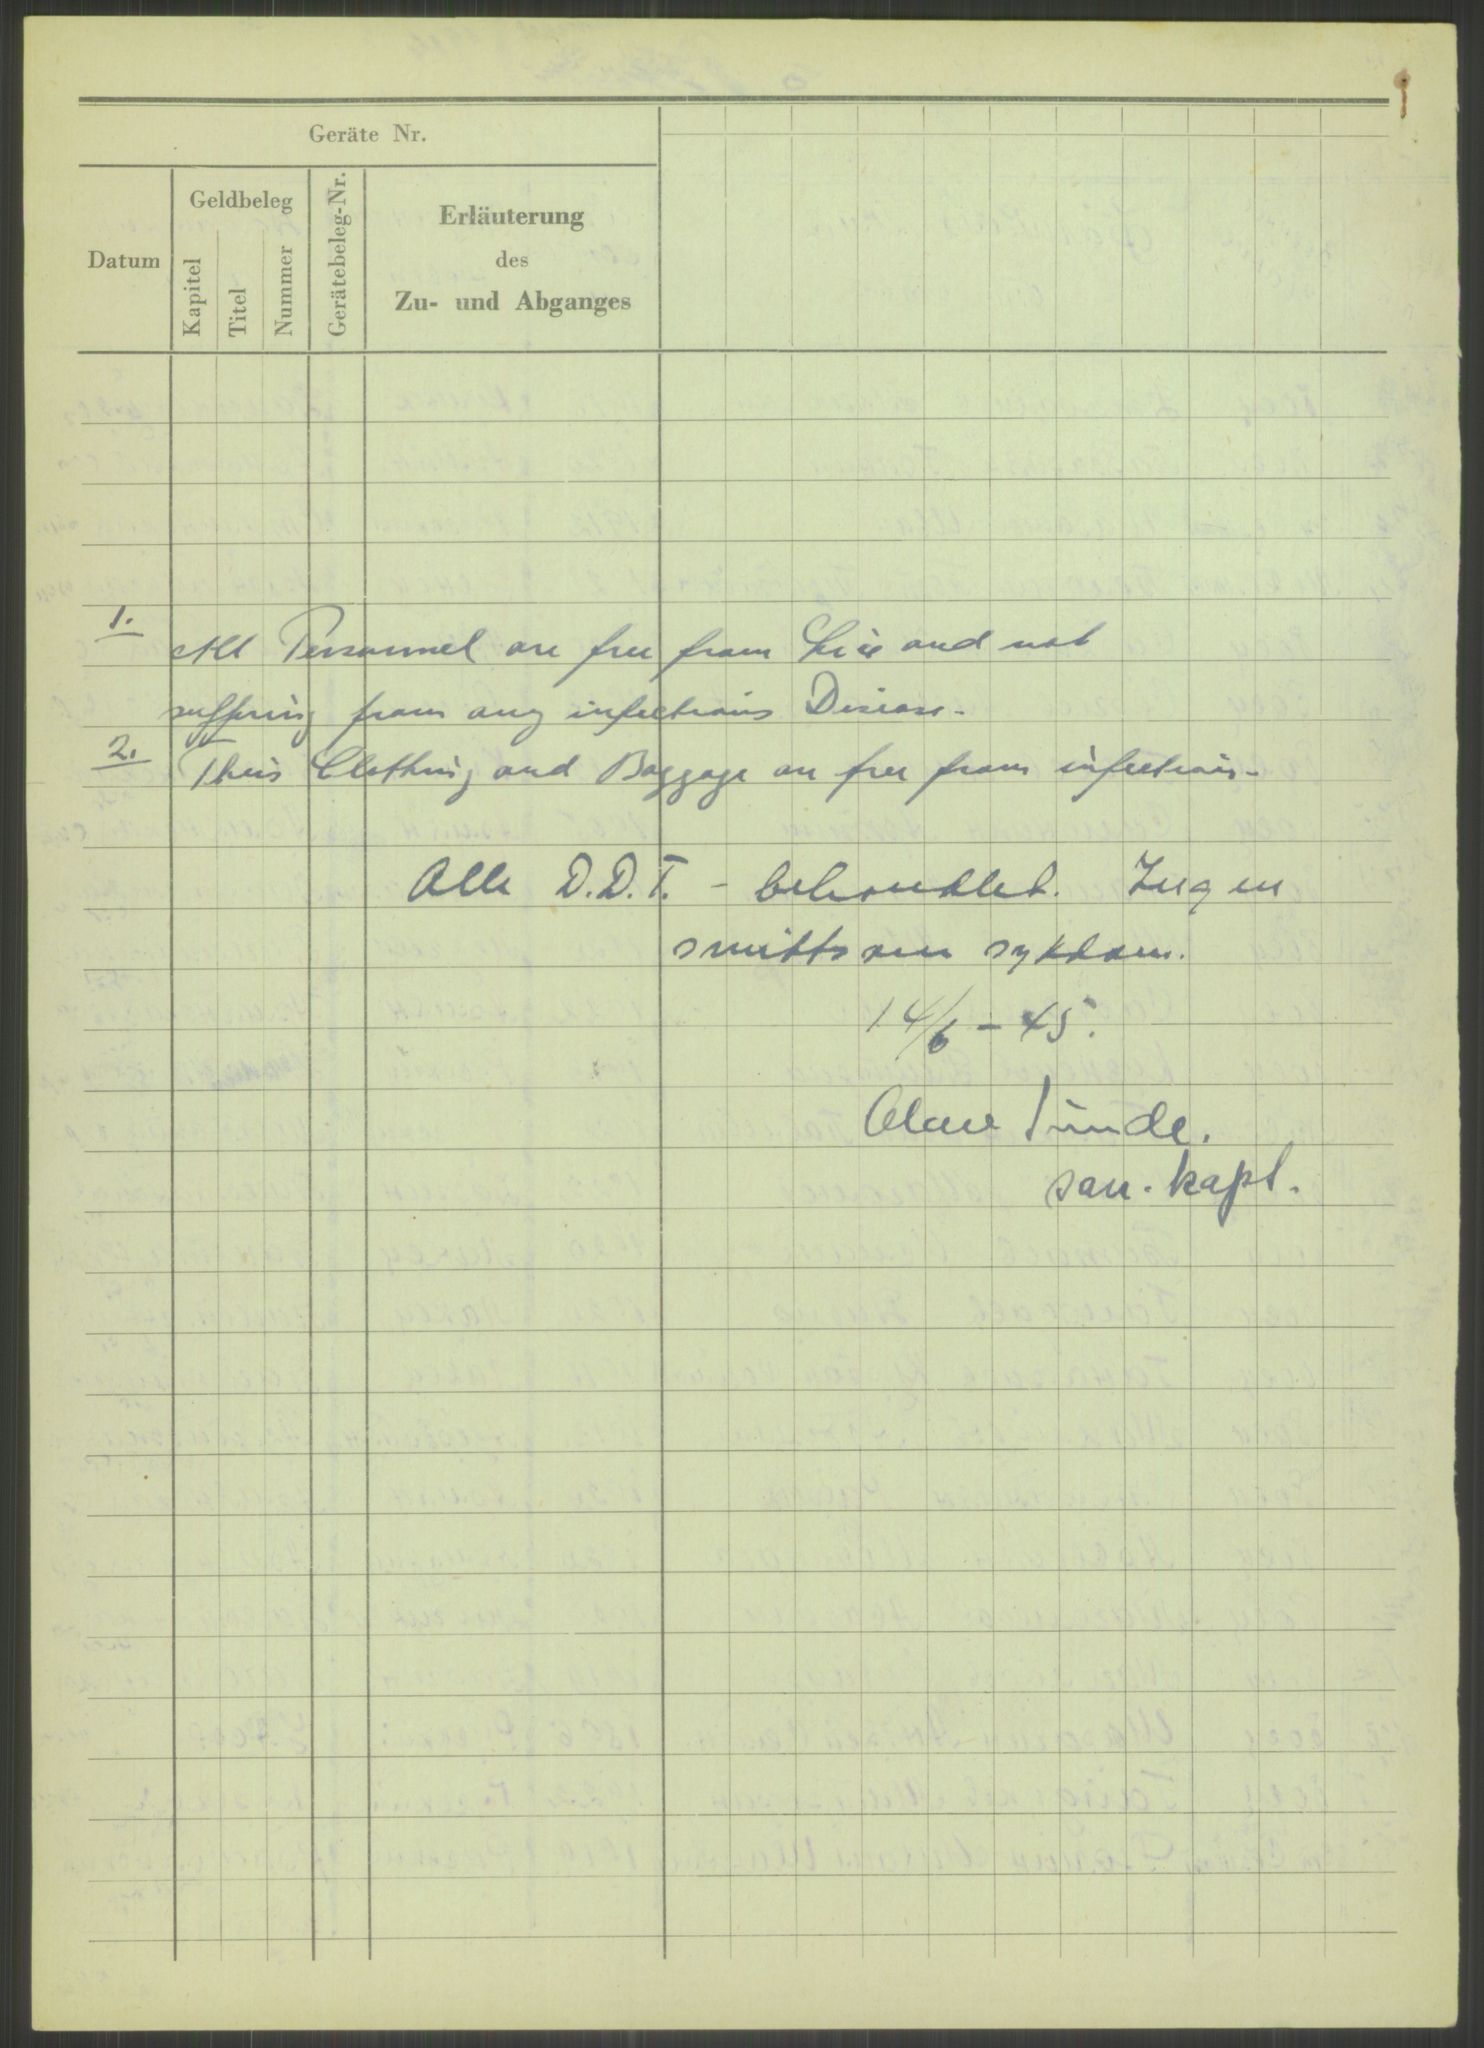 Geräte Nr.
Datum
Geldbeleg
Kapitel
Titel
Nummer
Gerätebeleg-Nr.
Erläuterung
des
Zu- und Abganges
1.
All Personnel are free from Lice and not
suffering from any infectious Disease.
2.
Their Clothing and Baggage are free from infection.
Alle D.D.T. - behandlet. Ingen
smittsom sykdom.
14/6 - 45.
Olav Sunde.
san. kapt.